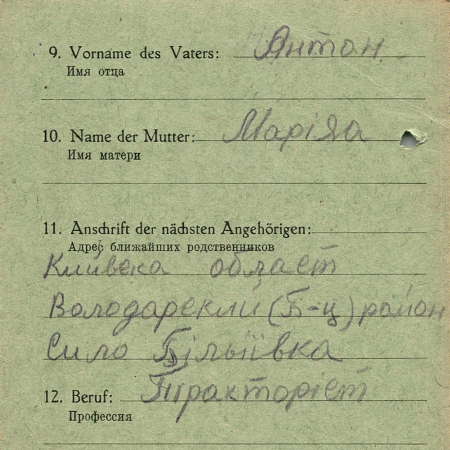 9. Vorname des Vaters: Антон
Имя отца
10. Name der Mutter: Маріяа
Имя матери
11. Anschrift der nächsten Angehörigen:
Адрес ближайших родственников
Київска област
Володарский (Б-ц) район
Сило Білыівка
12. Beruf: Тракторіст
Профессия